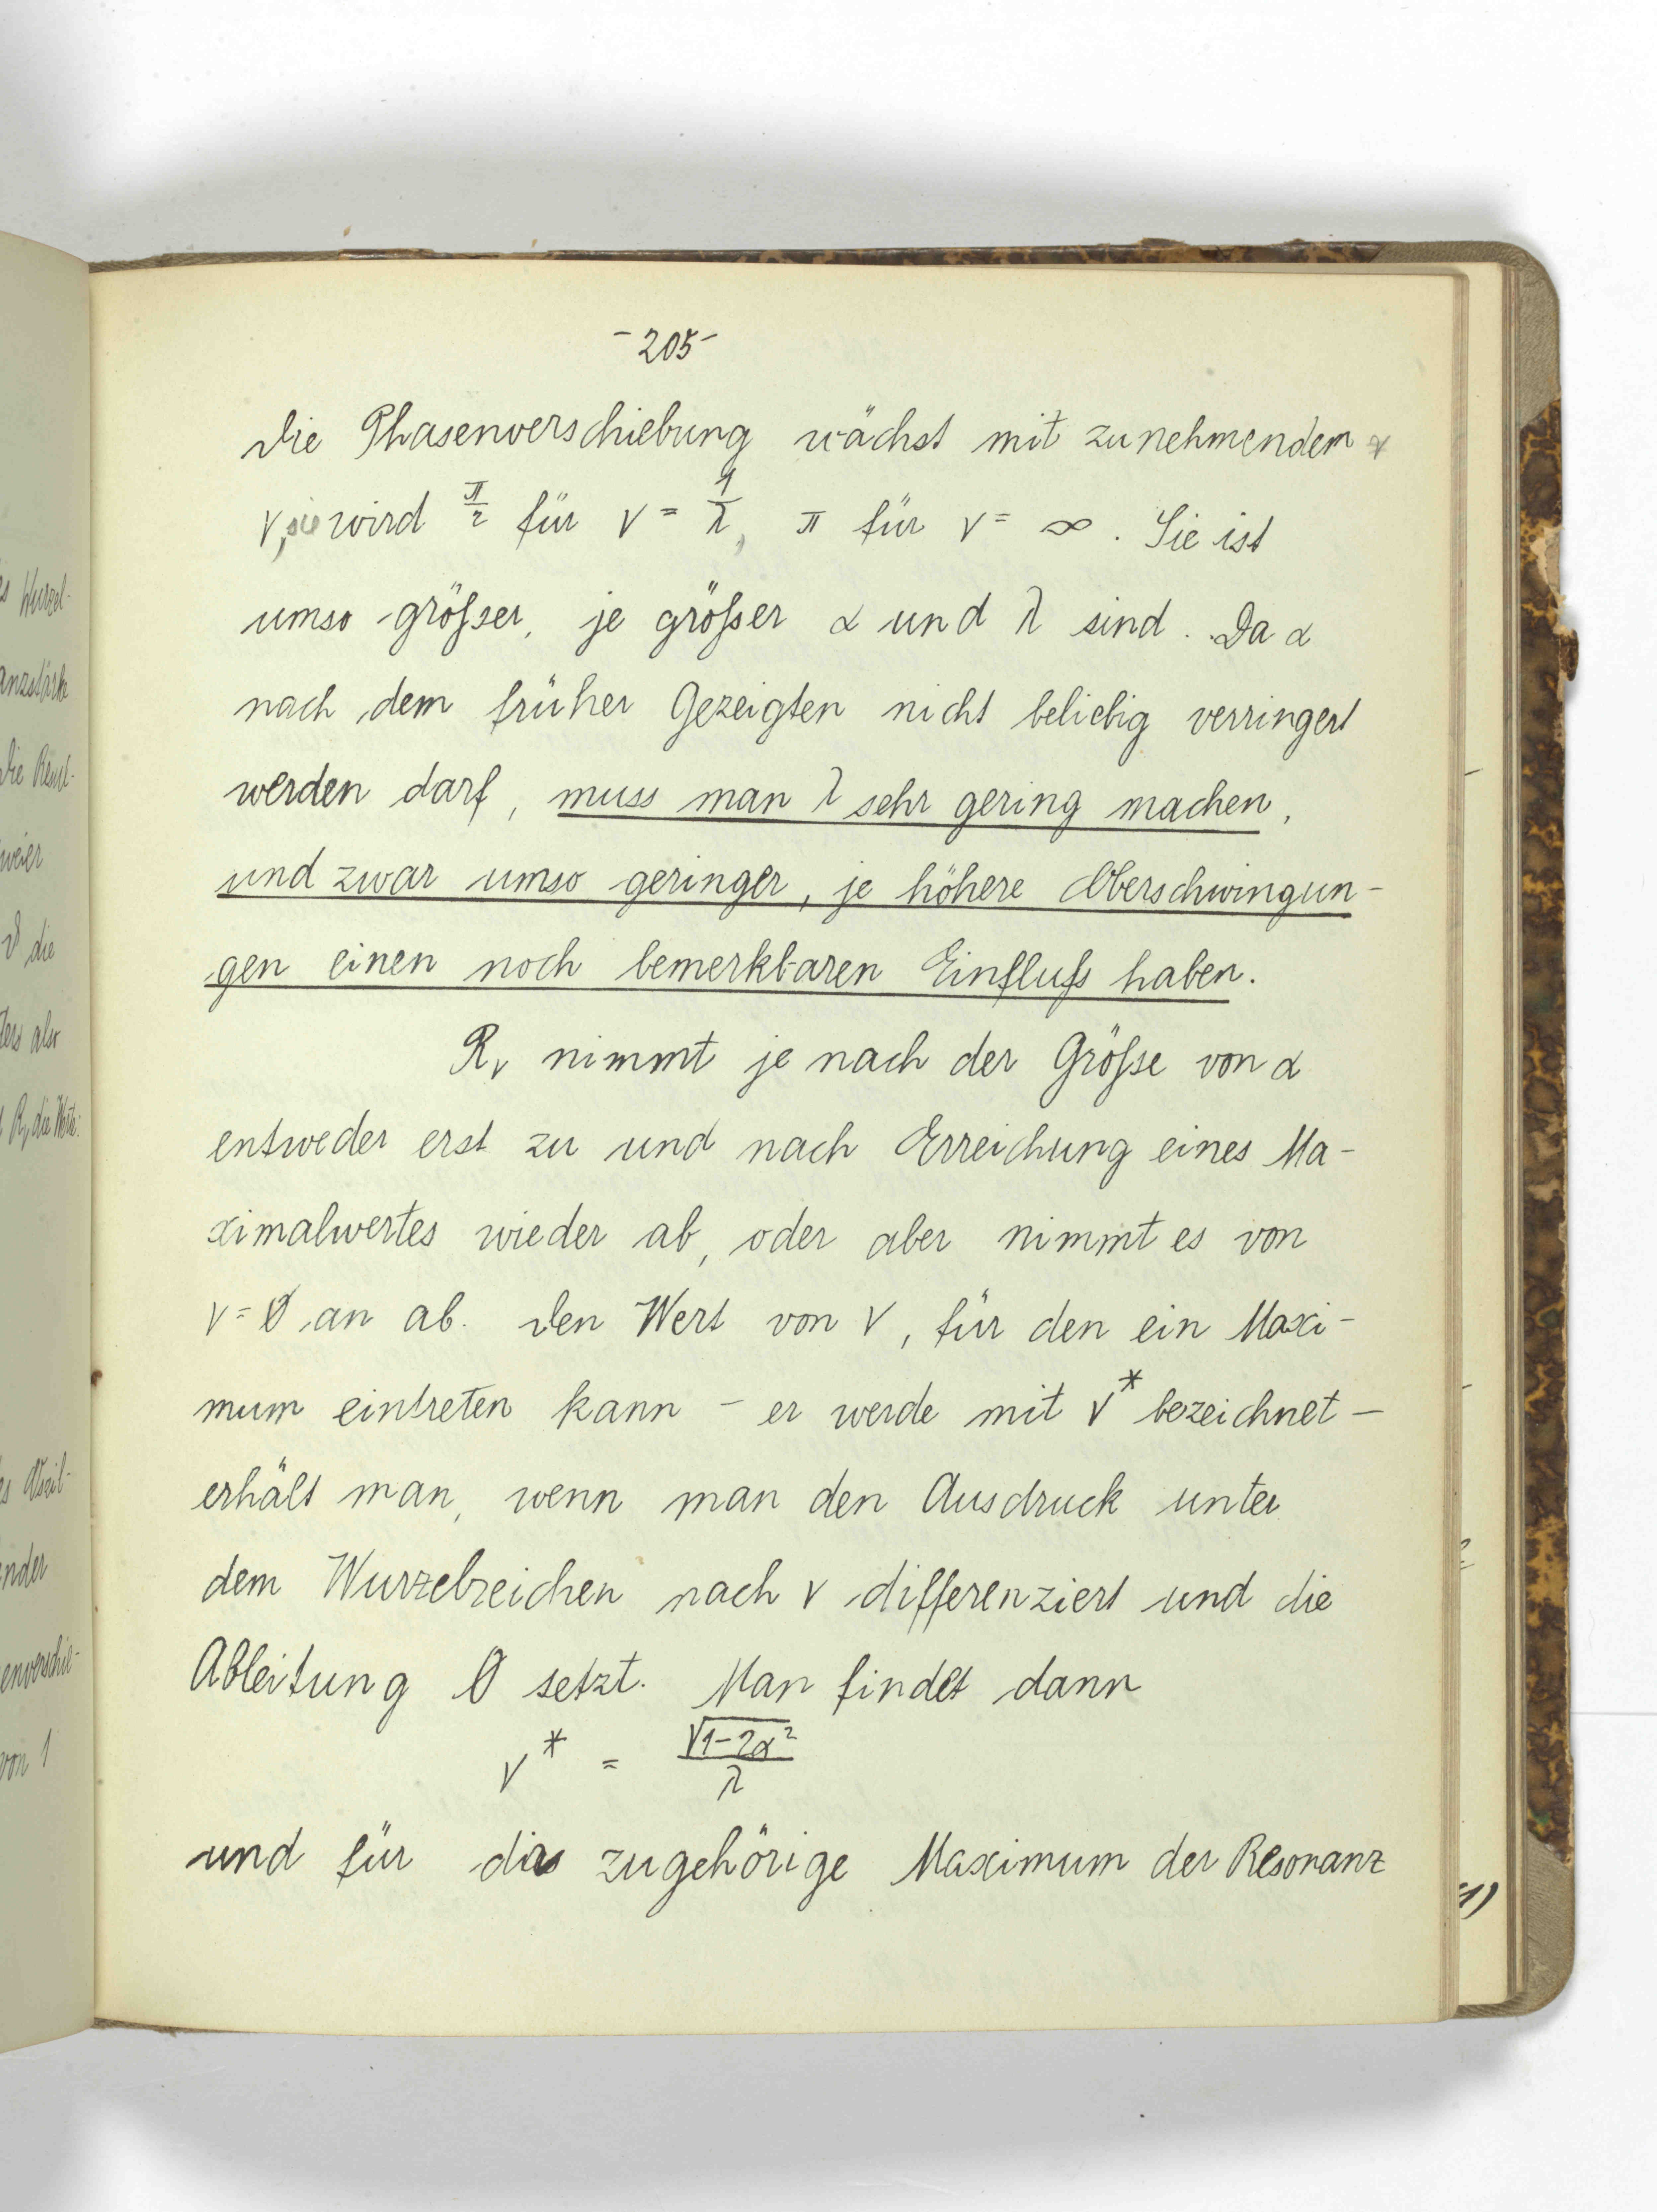 -205-
Die Phasenverschiebung wächst mit zunehmendem
ν, sie wird π/2 für ν = 1/λ, π für ν = ∞. Sie ist
umso größer, je größer α und λ sind. Da α
nach dem früher Gezeigten nicht beliebig verringert
werden darf, muss man λ sehr gering machen,
und zwar umso geringer, je höhere Oberschwingun-
gen einen noch bemerkbaren Einfluß haben.
Rν nimmt je nach der Größe von α
entweder erst zu und nach Erreichung eines Ma-
ximalwertes wieder ab, oder aber nimmt es von
ν = 0 an ab. Den Wert von ν, für den ein Maxi-
mum eintreten kann - er werde mit ν* bezeichnet -
erhält man, wenn man den Ausdruck unter
dem Wurzelzeichen nach ν differenziert und die
Ableitung 0 setzt. Man findet dann
ν* = √(1-2α²)/λ
und für das zugehörige Maximum der Resonanz
Wurzel-
die
von 1
1)